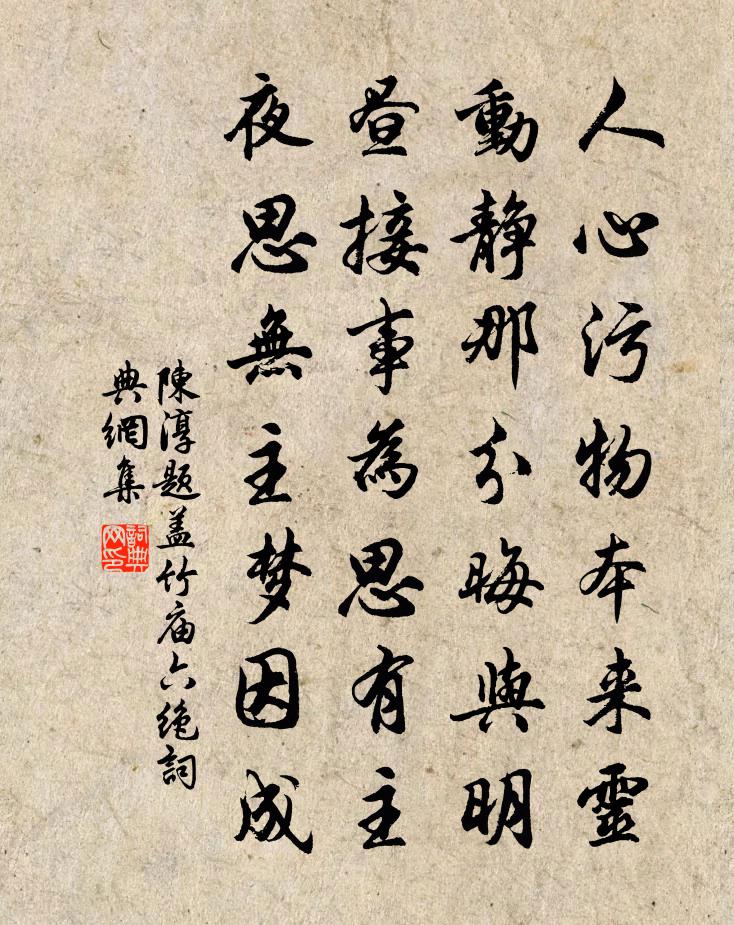 人心污物本来靈
動靜那分晦與明
昼接事為思有主
夜思無主梦因成
陳淳题盖竹庙六绝詞
典網集
詞典
网印